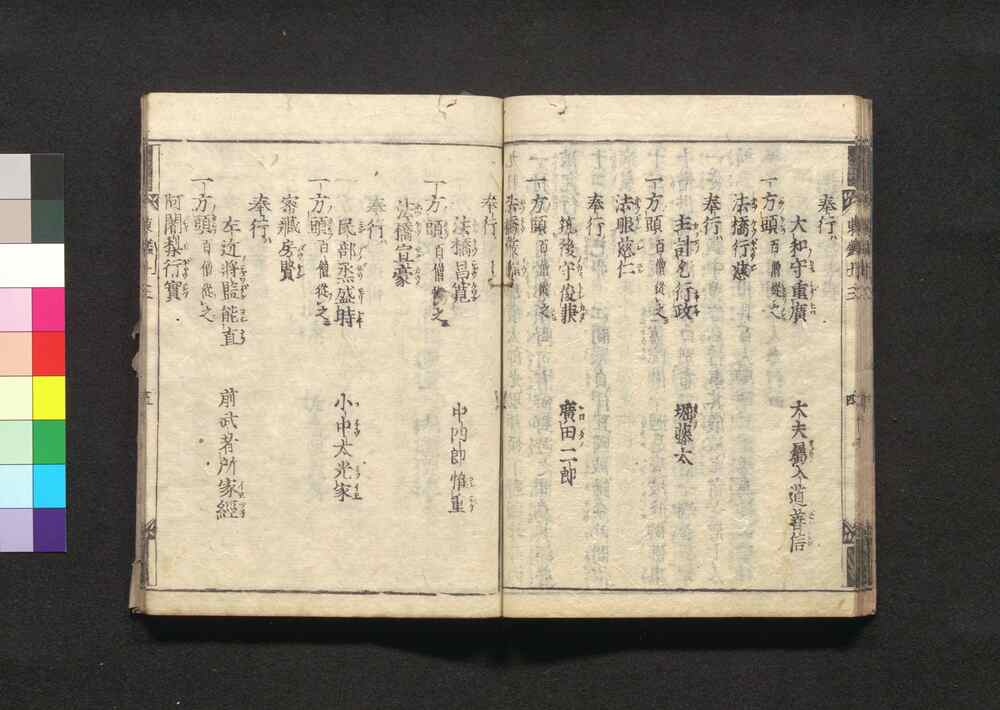 奉行
大和守重廣 大夫屬入道善信
一方頭百僧從之
法橋行慈
奉行
主計允行政 堀藤太
一方頭百僧從之
法眼慈仁
奉行
筑後守俊兼 廣田二郎
一方頭百僧從之
法橋嚴
奉行
法橋昌寬 中内郎惟重
一方頭百僧從之
法橋宜豪
奉行
民部烝盛時 小中太光家
一方頭百僧從之
密藏房賢
奉行
左近將監能直 前武者所家經
一方頭百僧從之
阿闍梨行實